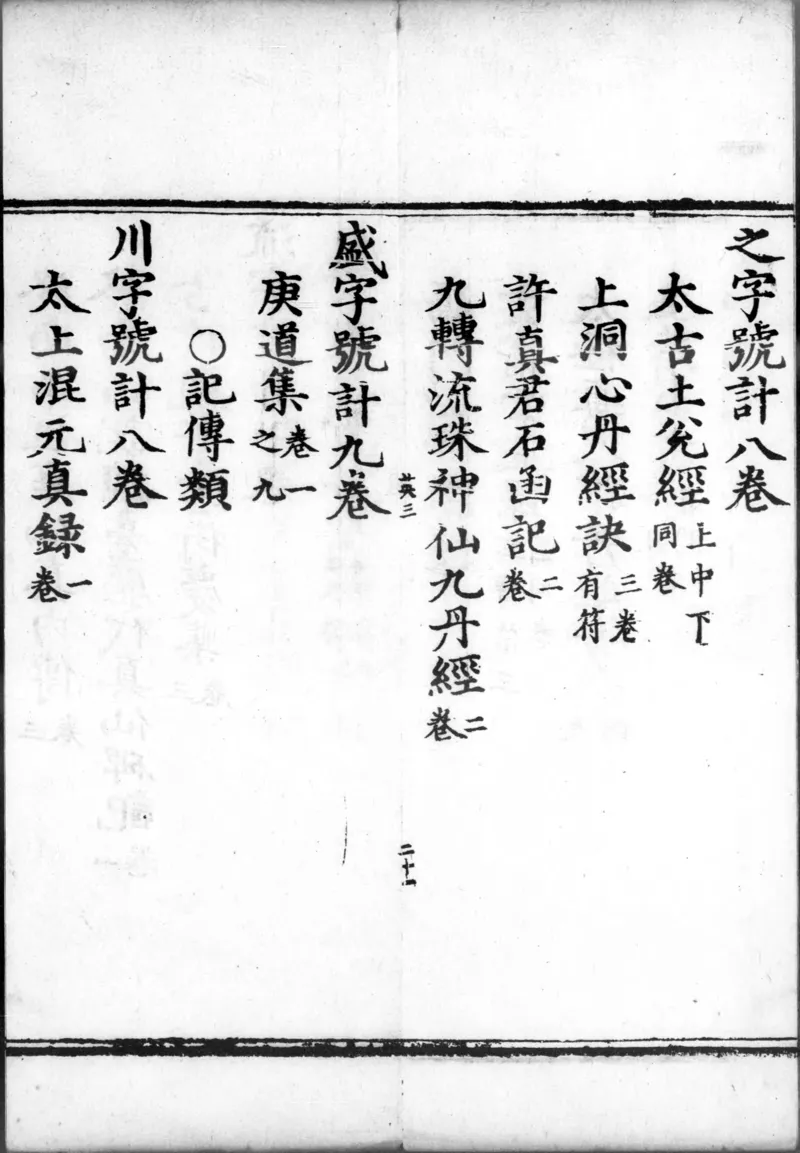 之字號計八卷
太古土兊經上中下同卷
上洞心丹經訣三卷有符
許真君石函記二卷
九轉流珠神仙九丹經二卷
英三
二十一
盛字號計九卷
庚道集卷一之九
〇記傳類
川字號計八卷
太上混元真録一卷